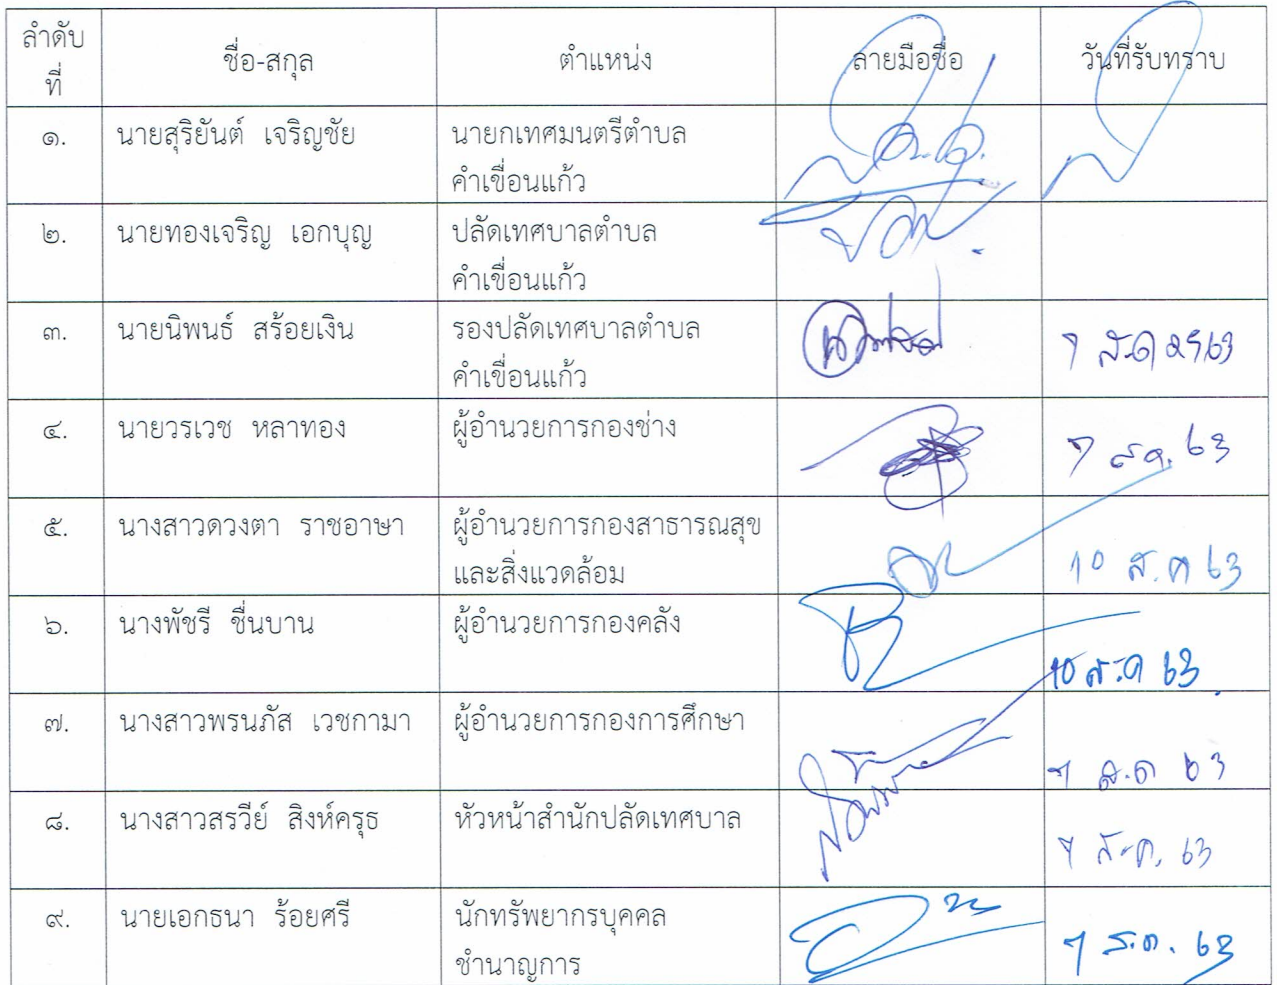 ลำดับ
ที่
ชื่อ-สกุล
ตำแหน่ง
ลายมือชื่อ
วันที่รับทราบ
๑.
นายสุริยันต์ เจริญชัย
นายกเทศมนตรีตำบล
คำเขื่อนแก้ว
๒.
นายทองเจริญ เอกบุญ
ปลัดเทศบาลตำบล
คำเขื่อนแก้ว
๓.
นายนิพนธ์ สร้อยเงิน
รองปลัดเทศบาลตำบล
คำเขื่อนแก้ว
7 ส.ค 2563
๔.
นายวรเวช หลาทอง
ผู้อำนวยการกองช่าง
7 ส.ค. 63
๕.
นางสาวดวงตา ราชอาษา
ผู้อำนวยการกองสาธารณสุข
และสิ่งแวดล้อม
10 ส.ค 63
๖.
นางพัชรี ชื่นบาน
ผู้อำนวยการกองคลัง
10 ส.ค 63
๗.
นางสาวพรนภัส เวชกามา
ผู้อำนวยการกองการศึกษา
7 ส.ค 63
๘.
นางสาวสรวีย์ สิงห์ครุธ
หัวหน้าสำนักปลัดเทศบาล
7 ส.ค. 63
๙.
นายเอกธนา ร้อยศรี
นักทรัพยากรบุคคล
ชำนาญการ
7 ส.ค. 63